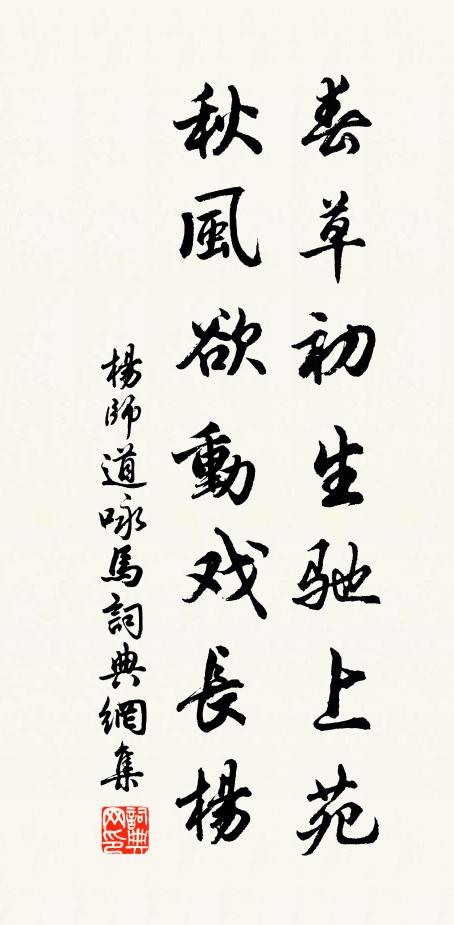 春草初生驰上苑
秋風欲動戏長楊
楊師道咏馬詞典網集
詞典网印